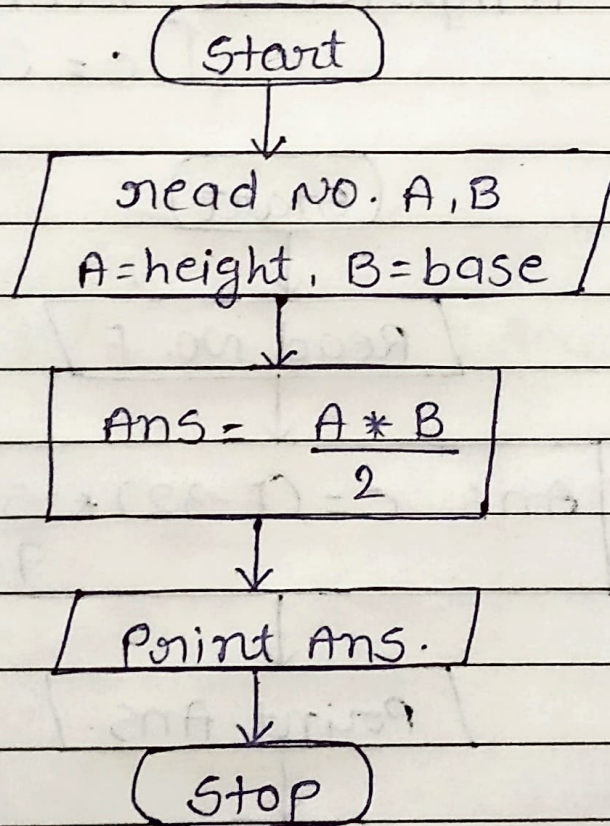 Start
read NO. A, B
A=height, B=base
Ans = A * B
2
Print Ans.
Stop